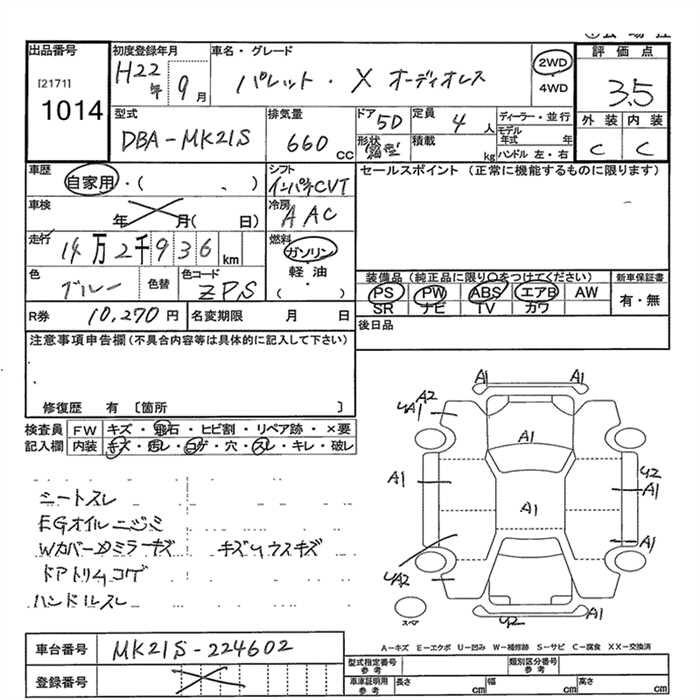 出品番号
[2171]
1014
初度登録年月
H22年 9月
車名・グレード
パレット・X オーディオレス
2WD
4WD
評価点
3.5
外装 内装
C C
型式
DBA-MK21S
排気量
660 CC
ドア 5D
形状 箱型
定員 4人
積載 kg
ディーラー・並行
モデル年式 年
ハンドル 左・右
車歴
自家用・( 、 )
車検
年 月( 日)
走行
14万2千936km
シフト
インパネCVT
冷房
AAC
燃料
ガソリン
軽油
( )
セールスポイント (正常に機能するものに限ります)
色
ブルー
色替
色コード
ZPS
装備品 (純正品に限り○をつけてください)
PS PW ABS エアB AW
SR ナビ TV カワ
新車保証書
有・無
R券 10,270円
名変期限 月 日
後日品
注意事項申告欄(不具合内容等は具体的に記入して下さい)
修復歴 有 〔箇所 〕
検査員記入欄
FW キズ・飛石・ヒビ割・リペア跡・×要
内装 キズ・汚レ・コゲ・穴・スレ・キレ・破レ
シートスレ
EGオイルニジミ
Wカバー口ミラーキズ キズUウスキズ
ドアトリムコゲ
ハンドルスレ
A1 A1
A2
UA1
A1
A1 U2
A1
A1
A1
UA2
スペア
U2 A1
A-キズ E-エクボ U-凹み W-補修跡 S-サビ C-腐食 XX-交換済
車台番号 MK21S-224602
登録番号
型式指定番号 参考
類別区分番号 参考
車庫証明用 参考 長さ cm 幅 cm 高さ cm